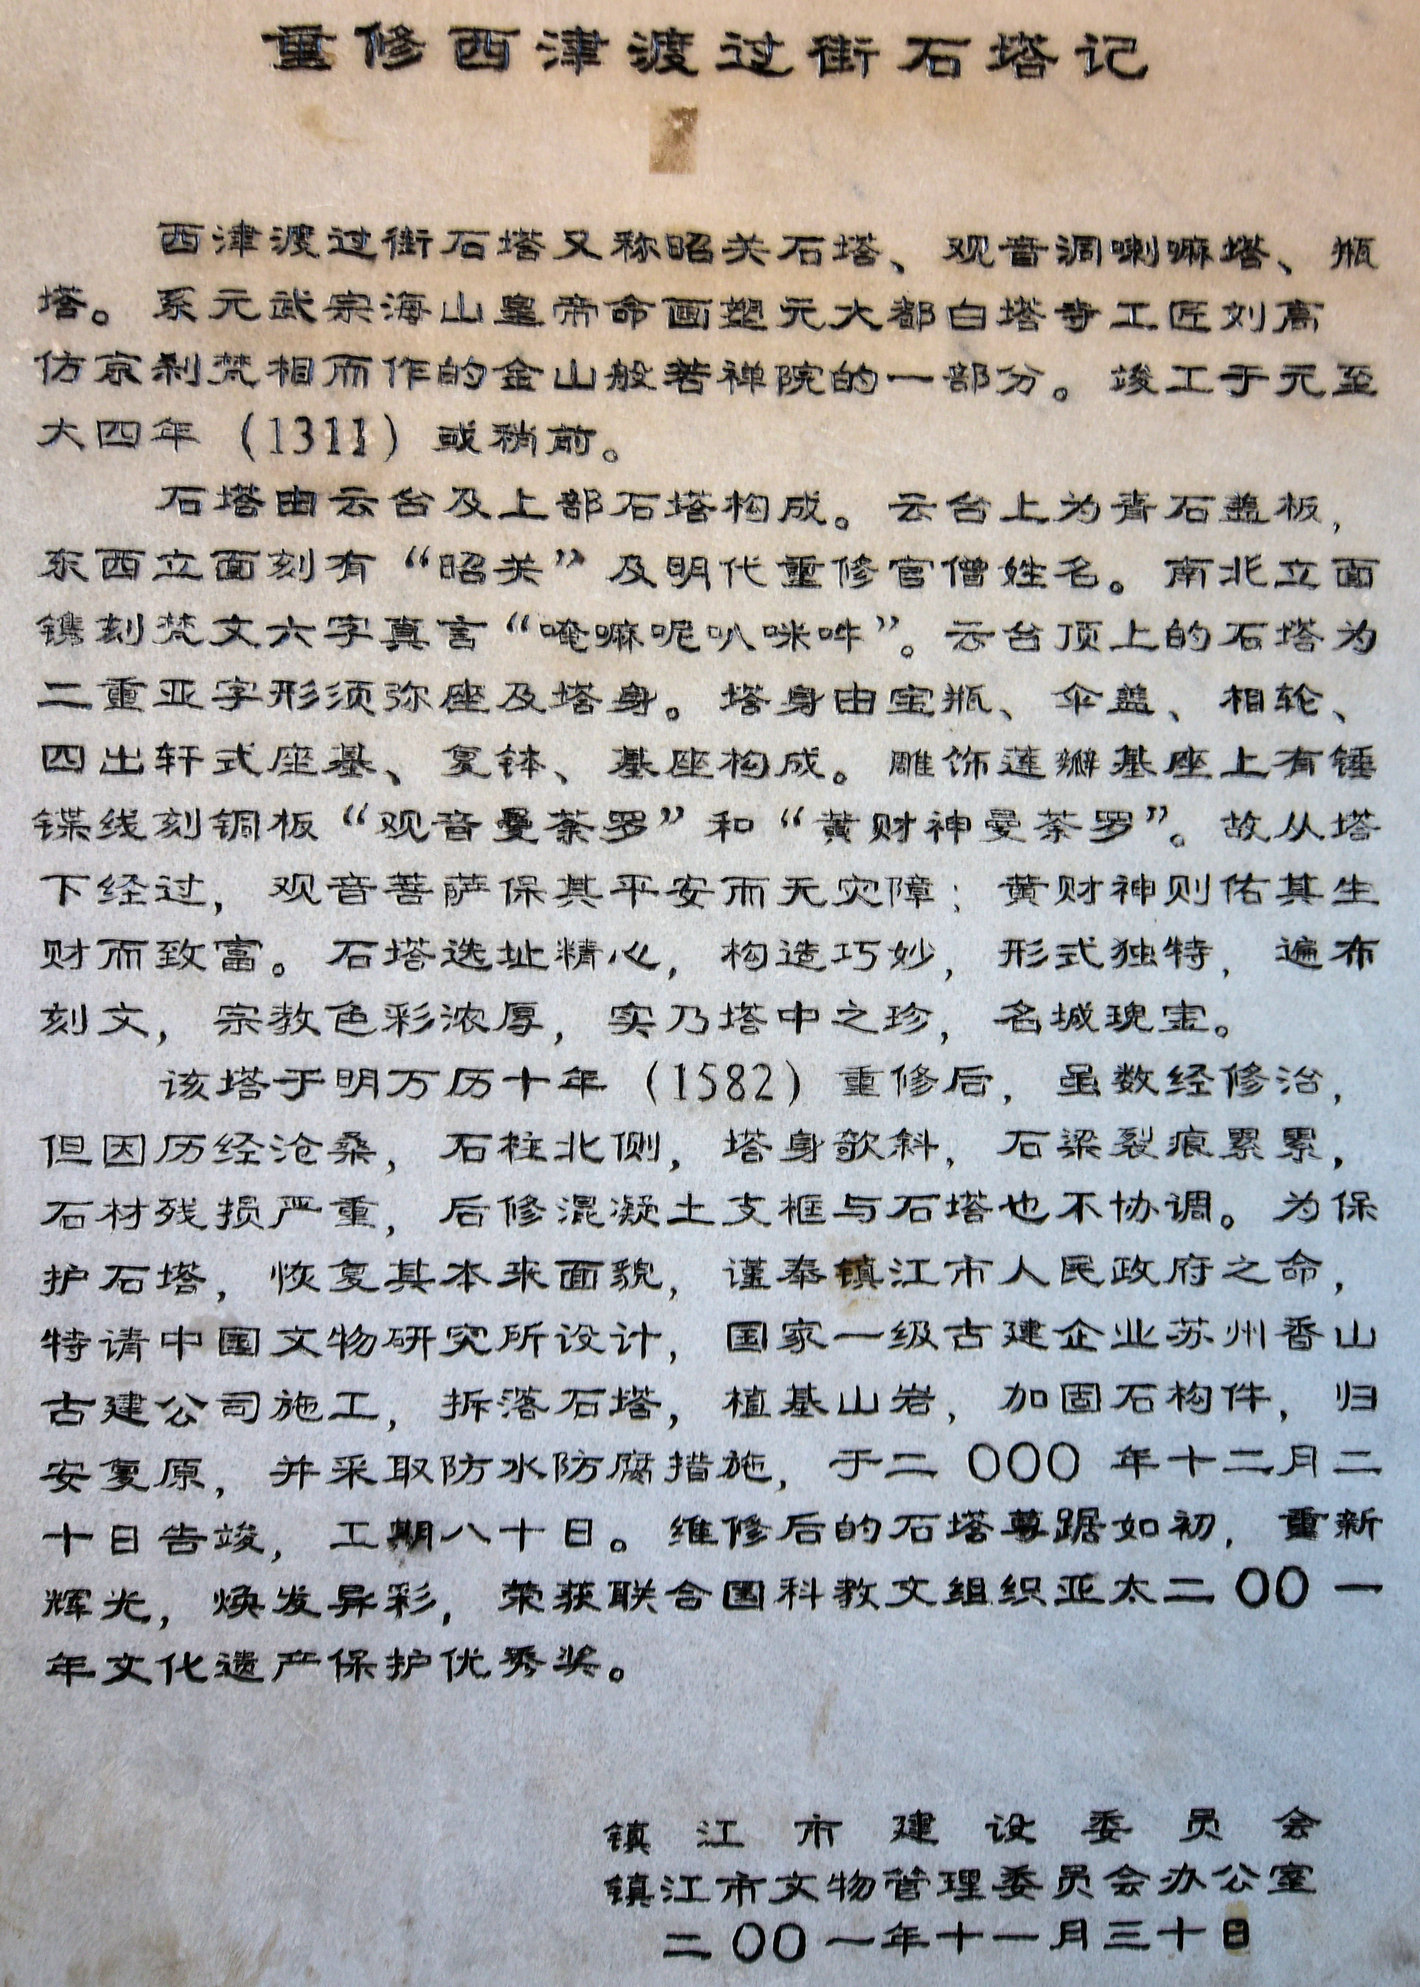 重修西津渡过街石塔记
西津渡过街石塔又称昭关石塔、观音洞喇嘛塔、瓶
塔。系元武宗海山皇帝命画塑元大都白塔寺工匠刘高
仿京刹梵相而作的金山般若禅院的一部分。竣工于元至
大四年（1311）或稍前。
石塔由云台及上部石塔构成。云台上为青石盖板，
东西立面刻有“昭关”及明代重修官僧姓名。南北立面
镌刻梵文六字真言“唵嘛呢叭咪吽”。云台顶上的石塔为
二重亚字形须弥座及塔身。塔身由宝瓶、伞盖、相轮、
四出轩式座基、复钵、基座构成。雕饰莲瓣基座上有锤
鍱线刻铜板“观音曼荼罗”和“黄财神曼荼罗”。故从塔
下经过，观音菩萨保其平安而无灾障；黄财神则佑其生
财而致富。石塔选址精心，构造巧妙，形式独特，遍布
刻文，宗教色彩浓厚，实乃塔中之珍，名城瑰宝。
该塔于明万历十年（1582）重修后，虽数经修治，
但因历经沧桑，石柱北侧，塔身欹斜，石梁裂痕累累，
石材残损严重，后修混凝土支框与石塔也不协调。为保
护石塔，恢复其本来面貌，谨奉镇江市人民政府之命，
特请中国文物研究所设计，国家一级古建企业苏州香山
古建公司施工，拆落石塔，植基山岩，加固石构件，归
安复原，并采取防水防腐措施，于二OOO年十二月二
十日告竣，工期八十日。维修后的石塔尊踞如初，重新
辉光，焕发异彩，荣获联合国科教文组织亚太二OO一
年文化遗产保护优秀奖。
镇江市建设委员会
镇江市文物管理委员会办公室
二OO一年十一月三十日